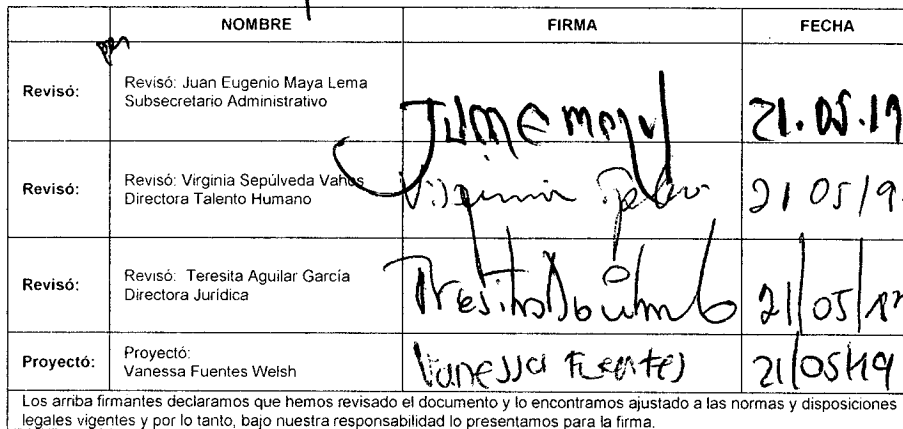 NOMBRE FIRMA FECHA
Revisó: Revisó: Juan Eugenio Maya Lema
Subsecretario Administrativo
21.05.19
Revisó: Revisó: Virginia Sepúlveda Vahos
Directora Talento Humano
Virginia 21 05 19
Revisó: Revisó: Teresita Aguilar García
Directora Jurídica
21/05/19
Proyectó: Proyectó:
Vanessa Fuentes Welsh
Vanessa Fuentes 21/05/19
Los arriba firmantes declaramos que hemos revisado el documento y lo encontramos ajustado a las normas y disposiciones
legales vigentes y por lo tanto, bajo nuestra responsabilidad lo presentamos para la firma.